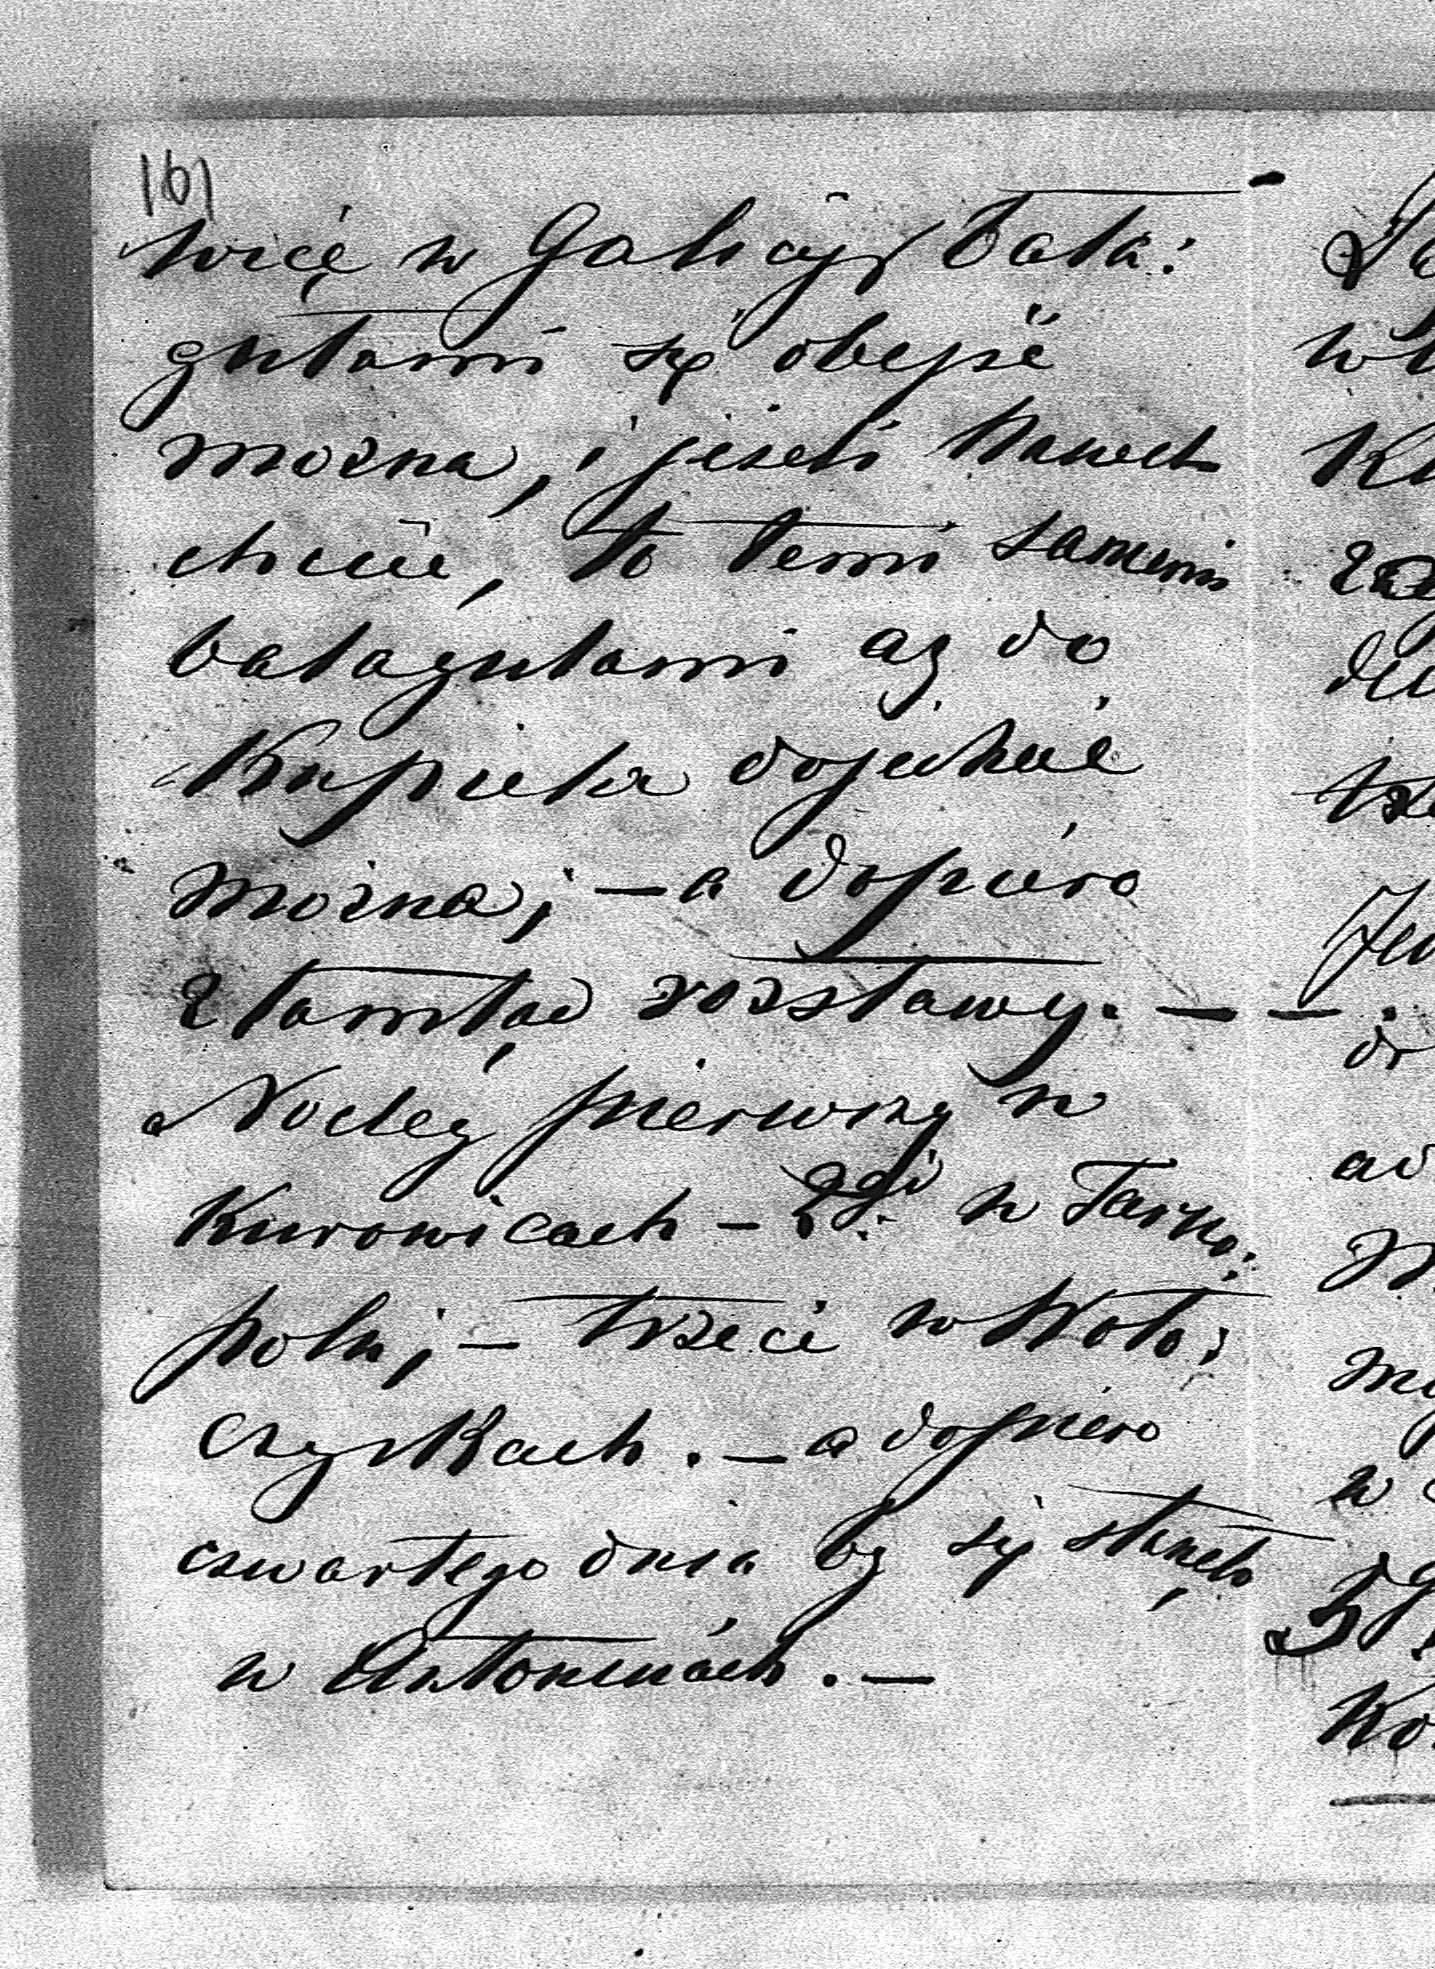 161
więc w Galicyi bała:
gułami się obejść
można, i jeżeli nawet
chcieć, to temi samemi
bałagułami aż do
Kupiela dojechać
można; — a dopiéro
ztamtąd rozstawy. —
Nocleg pierwszy w
Kurowicach — 2gi w Tarno:
polu; — trzeci w Woło:
czyskach. — a dopiéro
czwartego dnia by się stanęło
w Antoninách. —